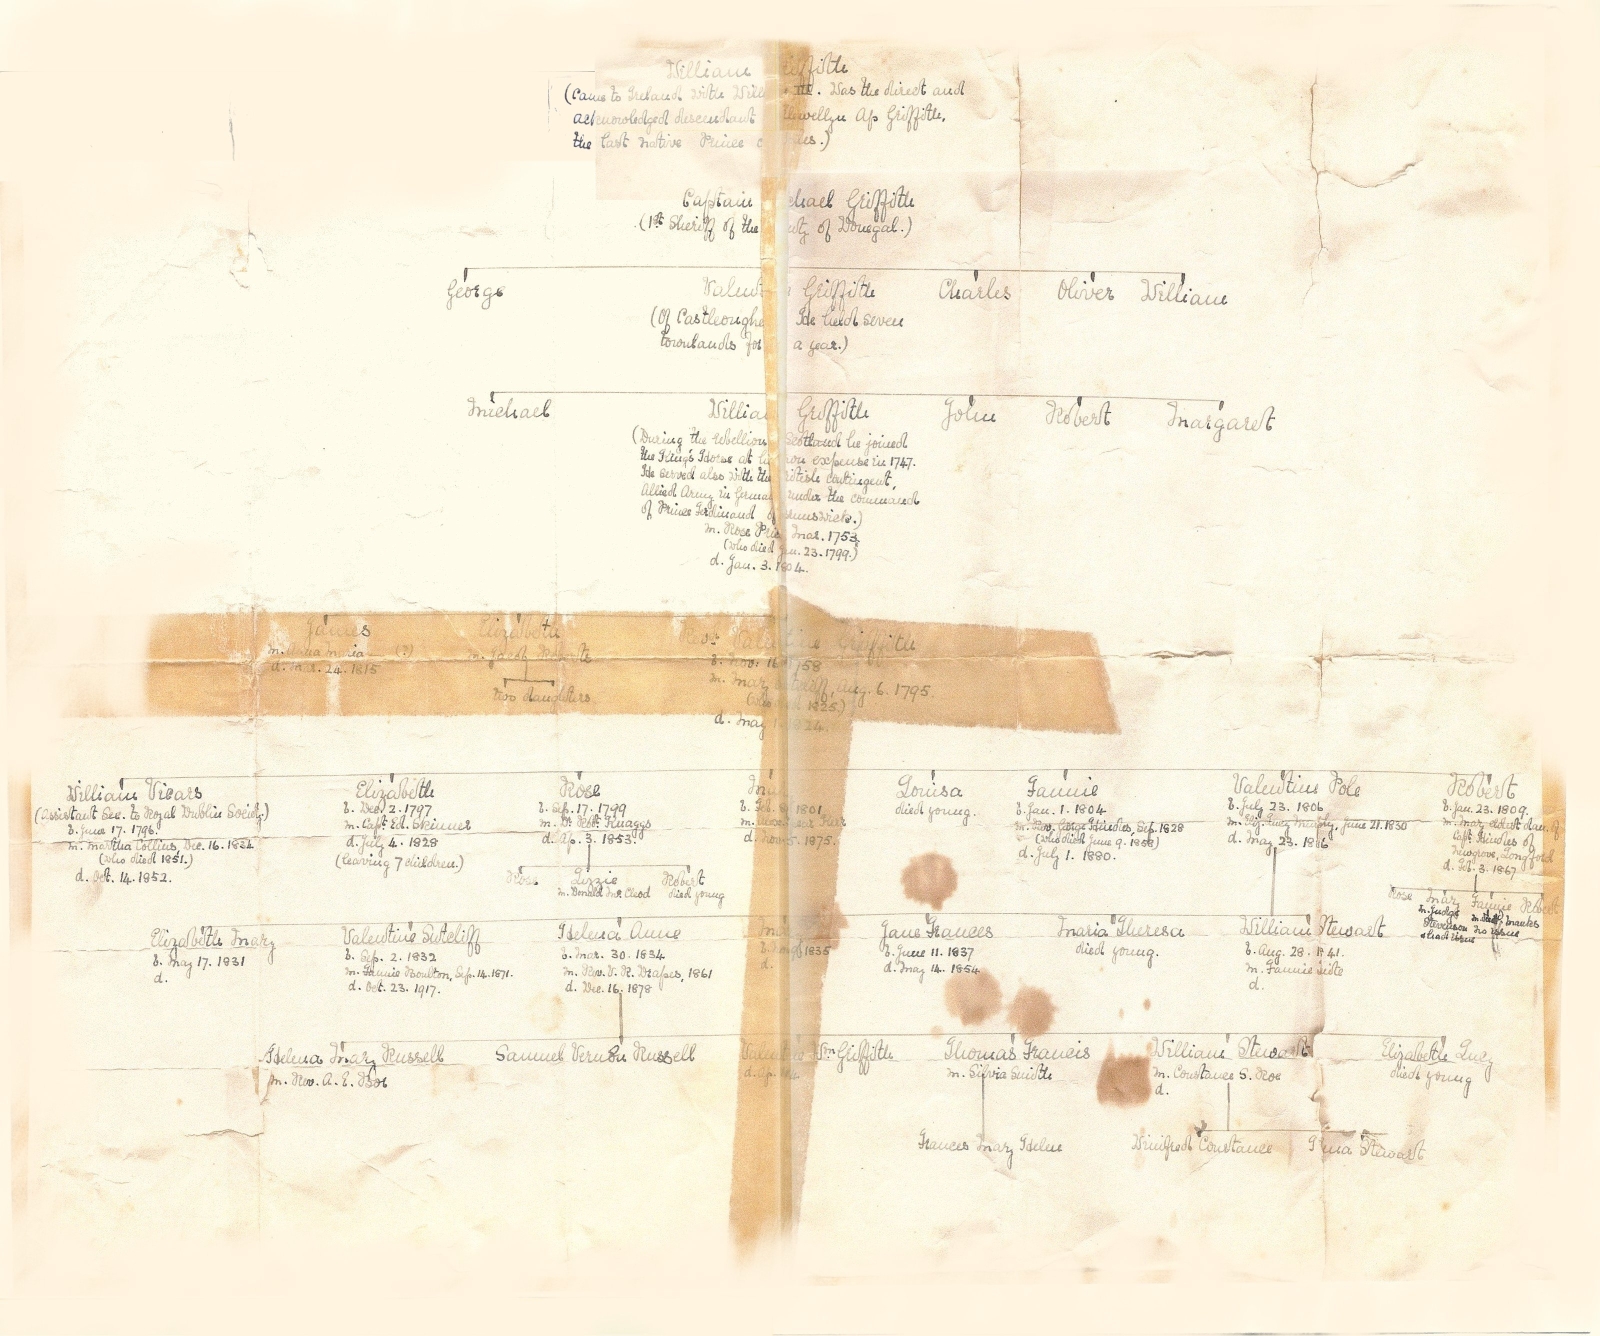 William Griffith
(Came to Ireland with Will . Was the direct and
acknowledged descendant Llewellyn Ap Griffith,
the last native Prince
Captain Michael Griffith
(1st Sheriff of the County of Donegal.)
George Valentine Griffith Charles Oliver William
(Of He held seven
townlands for a year.)
Michael William Griffith John Robert Margaret
(During the rebellion Scotland he joined
the King's Horse at his own expense in 1747.
He served also with the British contingent,
Allied Army in Germany under the command
of Prince Ferdinand of Brunswick.)
m. Rose Mar. 1753.
(who died Jan. 23. 1799.)
d. Jan. 3. 1804.
James Elizabeth Revd. Valentine Griffith
m. Anna Maria (?) m. Jacob b. Nov. 16
d. Mar. 24. 1815 two daughters m. Mary Sutcliff, Aug. 6. 1795.
(who died 1825.)
d. May 1824.
William Vicars Elizabeth Rose Louisa Fannie Valentine Pole Robert
(Assistant Sec. to Royal Dublin Society) b. Dec. 2. 1797 b. Sep. 17. 1799 b. Feb. 1801 died young. b. Jan. 1. 1804 b. July 23. 1806 b. Jan. 23. 1809.
b. June 17. 1796. m. Capt. Ed. Skinner m. Dr. Robt. Knaggs m. m. Rev. George Hindes, Sep. 1828 m. Eliz. Lucy Murphy, June 21. 1830 m. Mary eldest dau. of
m. Martha Collins, Dec. 16. 1834 d. July 4. 1828 d. Ap. 3. 1853. d. Nov. 5. 1875. (who died June 9. 1858) d. May 23. Capt. Hindes of
(who died 1851.) (leaving 7 children.) d. July 1. 1880. Newgrove, Longford
d. Oct. 14. 1852. d. Feb. 3. 1867
Rose Lizzie Robert
m. Donald Mc Cleod died young
Rose Mary Fannie Robert
m. Judge
Stevenson no issue
& had issue
Elizabeth Mary Valentine Sutcliff Helena Anne Jane Frances Maria Theresa William Stewart
b. May 17. 1831 b. Sep. 2. 1832 b. Mar. 30. 1834 1835 b. June 11. 1837 died young. b. Aug. 28. 1841.
d. m. Fannie Boulton, Sep. 14. 1871. m. Rev. V. R. Drapes, 1861 d. d. May 14. 1854 m. Fannie
d. Oct. 23. 1917. d. Dec. 16. 1878 d.
Helena Mary Russell Samuel Vernon Russell Valentine Wm Griffith Thomas Francis William Stewart Elizabeth Lucy
m. Rev. A. E. d. Ap. m. Silvia Smith m. Constance S. Roe died young
d.
Frances Mary Helen Winifred Constance Stewart